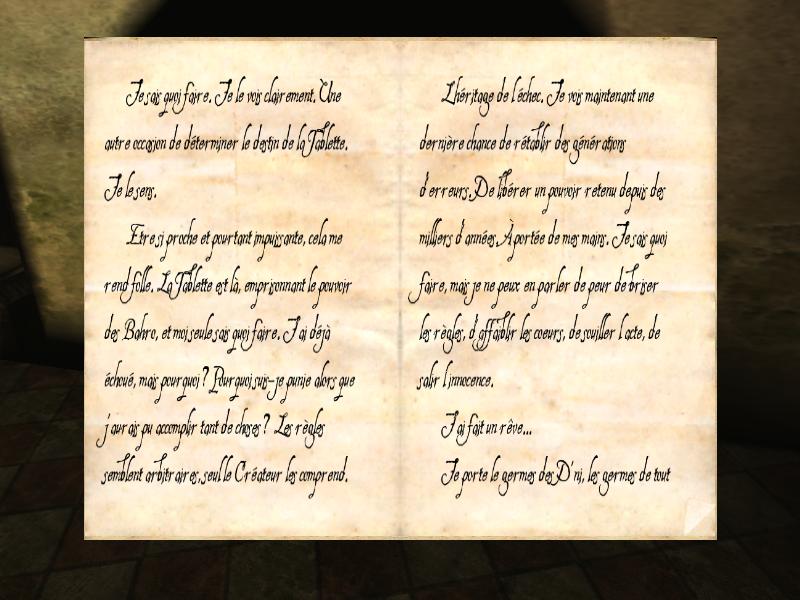 Je sais quoi faire. Je le vois clairement. Une
autre occasion de déterminer le destin de la Tablette.
Je le sens.
Etre si proche et pourtant impuissante, cela me
rend folle. La Tablette est là, emprisonnant le pouvoir
des Bahro, et moi seule sais quoi faire. J'ai déjà
échoué, mais pourquoi ? Pourquoi suis-je punie alors que
j'aurais pu accomplir tant de choses ? Les règles
semblent arbitraires, seul le Créateur les comprend.
L'héritage de l'échec. Je vois maintenant une
dernière chance de rétablir des générations
d'erreurs. De libérer un pouvoir retenu depuis des
milliers d'années. À portée de mes mains. Je sais quoi
faire, mais je ne peux en parler de peur de briser
les règles, d'affaiblir les coeurs, de souiller l'acte, de
salir l'innocence.
J'ai fait un rêve...
Je porte le germes des D'ni, les germes de tout